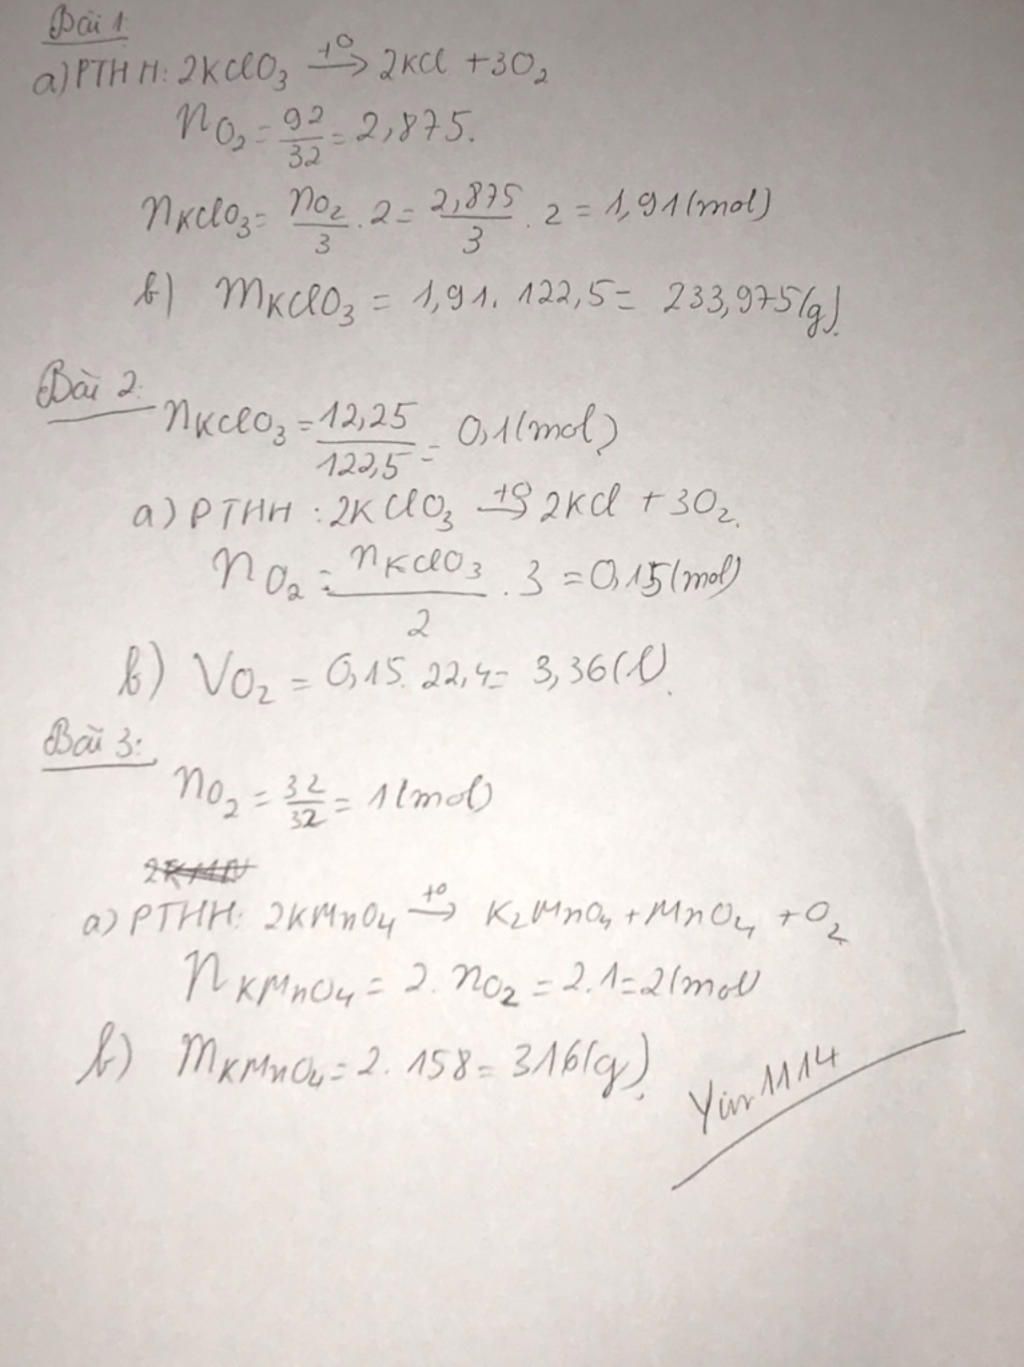 Bài 1:
a) PTHH: 2KClO3 t0→ 2KCl + 3O2
nO2 = 92/32 = 2,875.
nKClO3 = nO2/3 . 2 = 2,875/3 . 2 = 1,91 (mol)
b) mKClO3 = 1,91. 122,5 = 233,975 (g).
Bài 2:
nKClO3 = 12,25/122,5 = 0,1 (mol)
a) PTHH : 2KClO3 t0→ 2KCl + 3O2.
nO2 = nKClO3/2 . 3 = 0,15 (mol)
b) VO2 = 0,15. 22,4 = 3,36 (l).
Bài 3:
nO2 = 32/32 = 1 (mol)
a) PTHH: 2KMnO4 t0→ K2MnO4 + MnO4 + O2
nKMnO4 = 2. nO2 = 2.1 = 2 (mol)
b) mKMnO4 = 2. 158 = 316 (g).